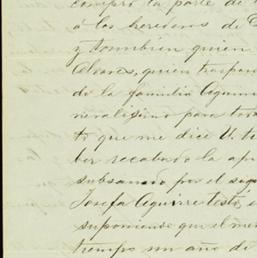 compró la parte de
á los herederos de
y tambien quien
Alvares, quien traspas
do la familia Aguirre
para tod
to que me dice U. te
ber recabado la ap
subsanado por el sig
Josefa Aguirre testó, e
suponiendo que el mer
tiempo un año de